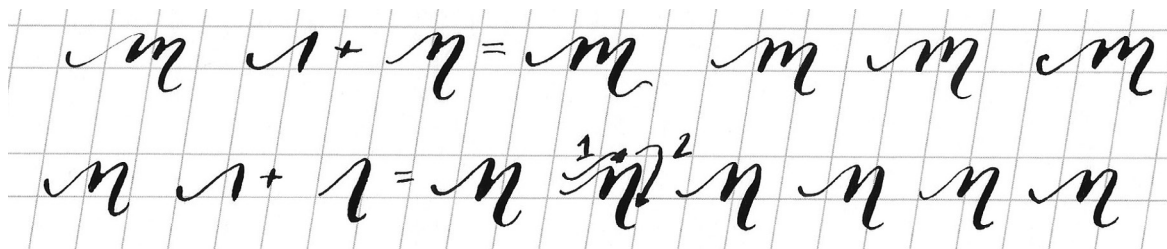 m ı + n = m m m m
n ı + ı = n 1 n 2 n n n n